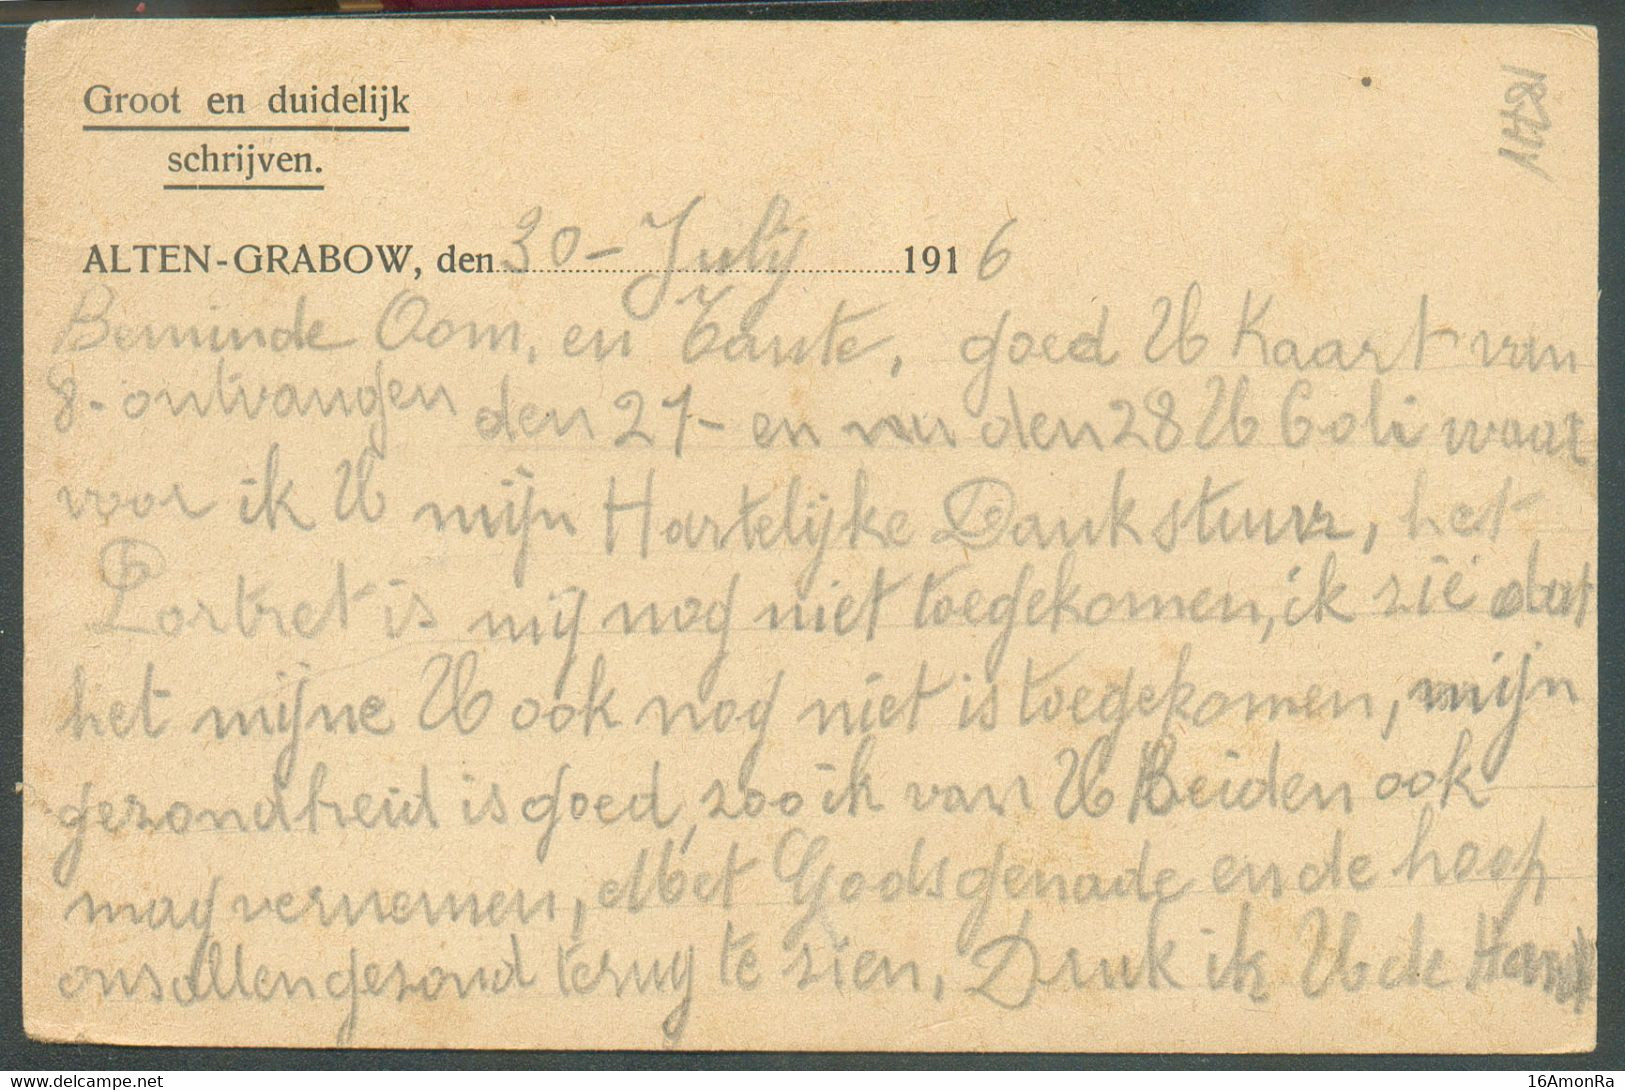 Groot en duidelijk
schrijven.
ALTEN-GRABOW, den 30 - July 1916
Beminde Oom, en Tante, goed U Kaart van
8 - ontvangen den 21 - en nu den 28 U Coli waar
voor ik U mijn Hartelijke Dank stuur, het
Portret is mij nog niet toegekomen, ik zie dat
het mijne U ook nog niet is toegekomen, mijn
gezondheid is goed, zoo ik van U Beiden ook
mag vernemen, Met Gods genade en de hoop
ons allen gezond terug te zien, Druk ik U de Hand
www.delcampe.net
16AmonRa